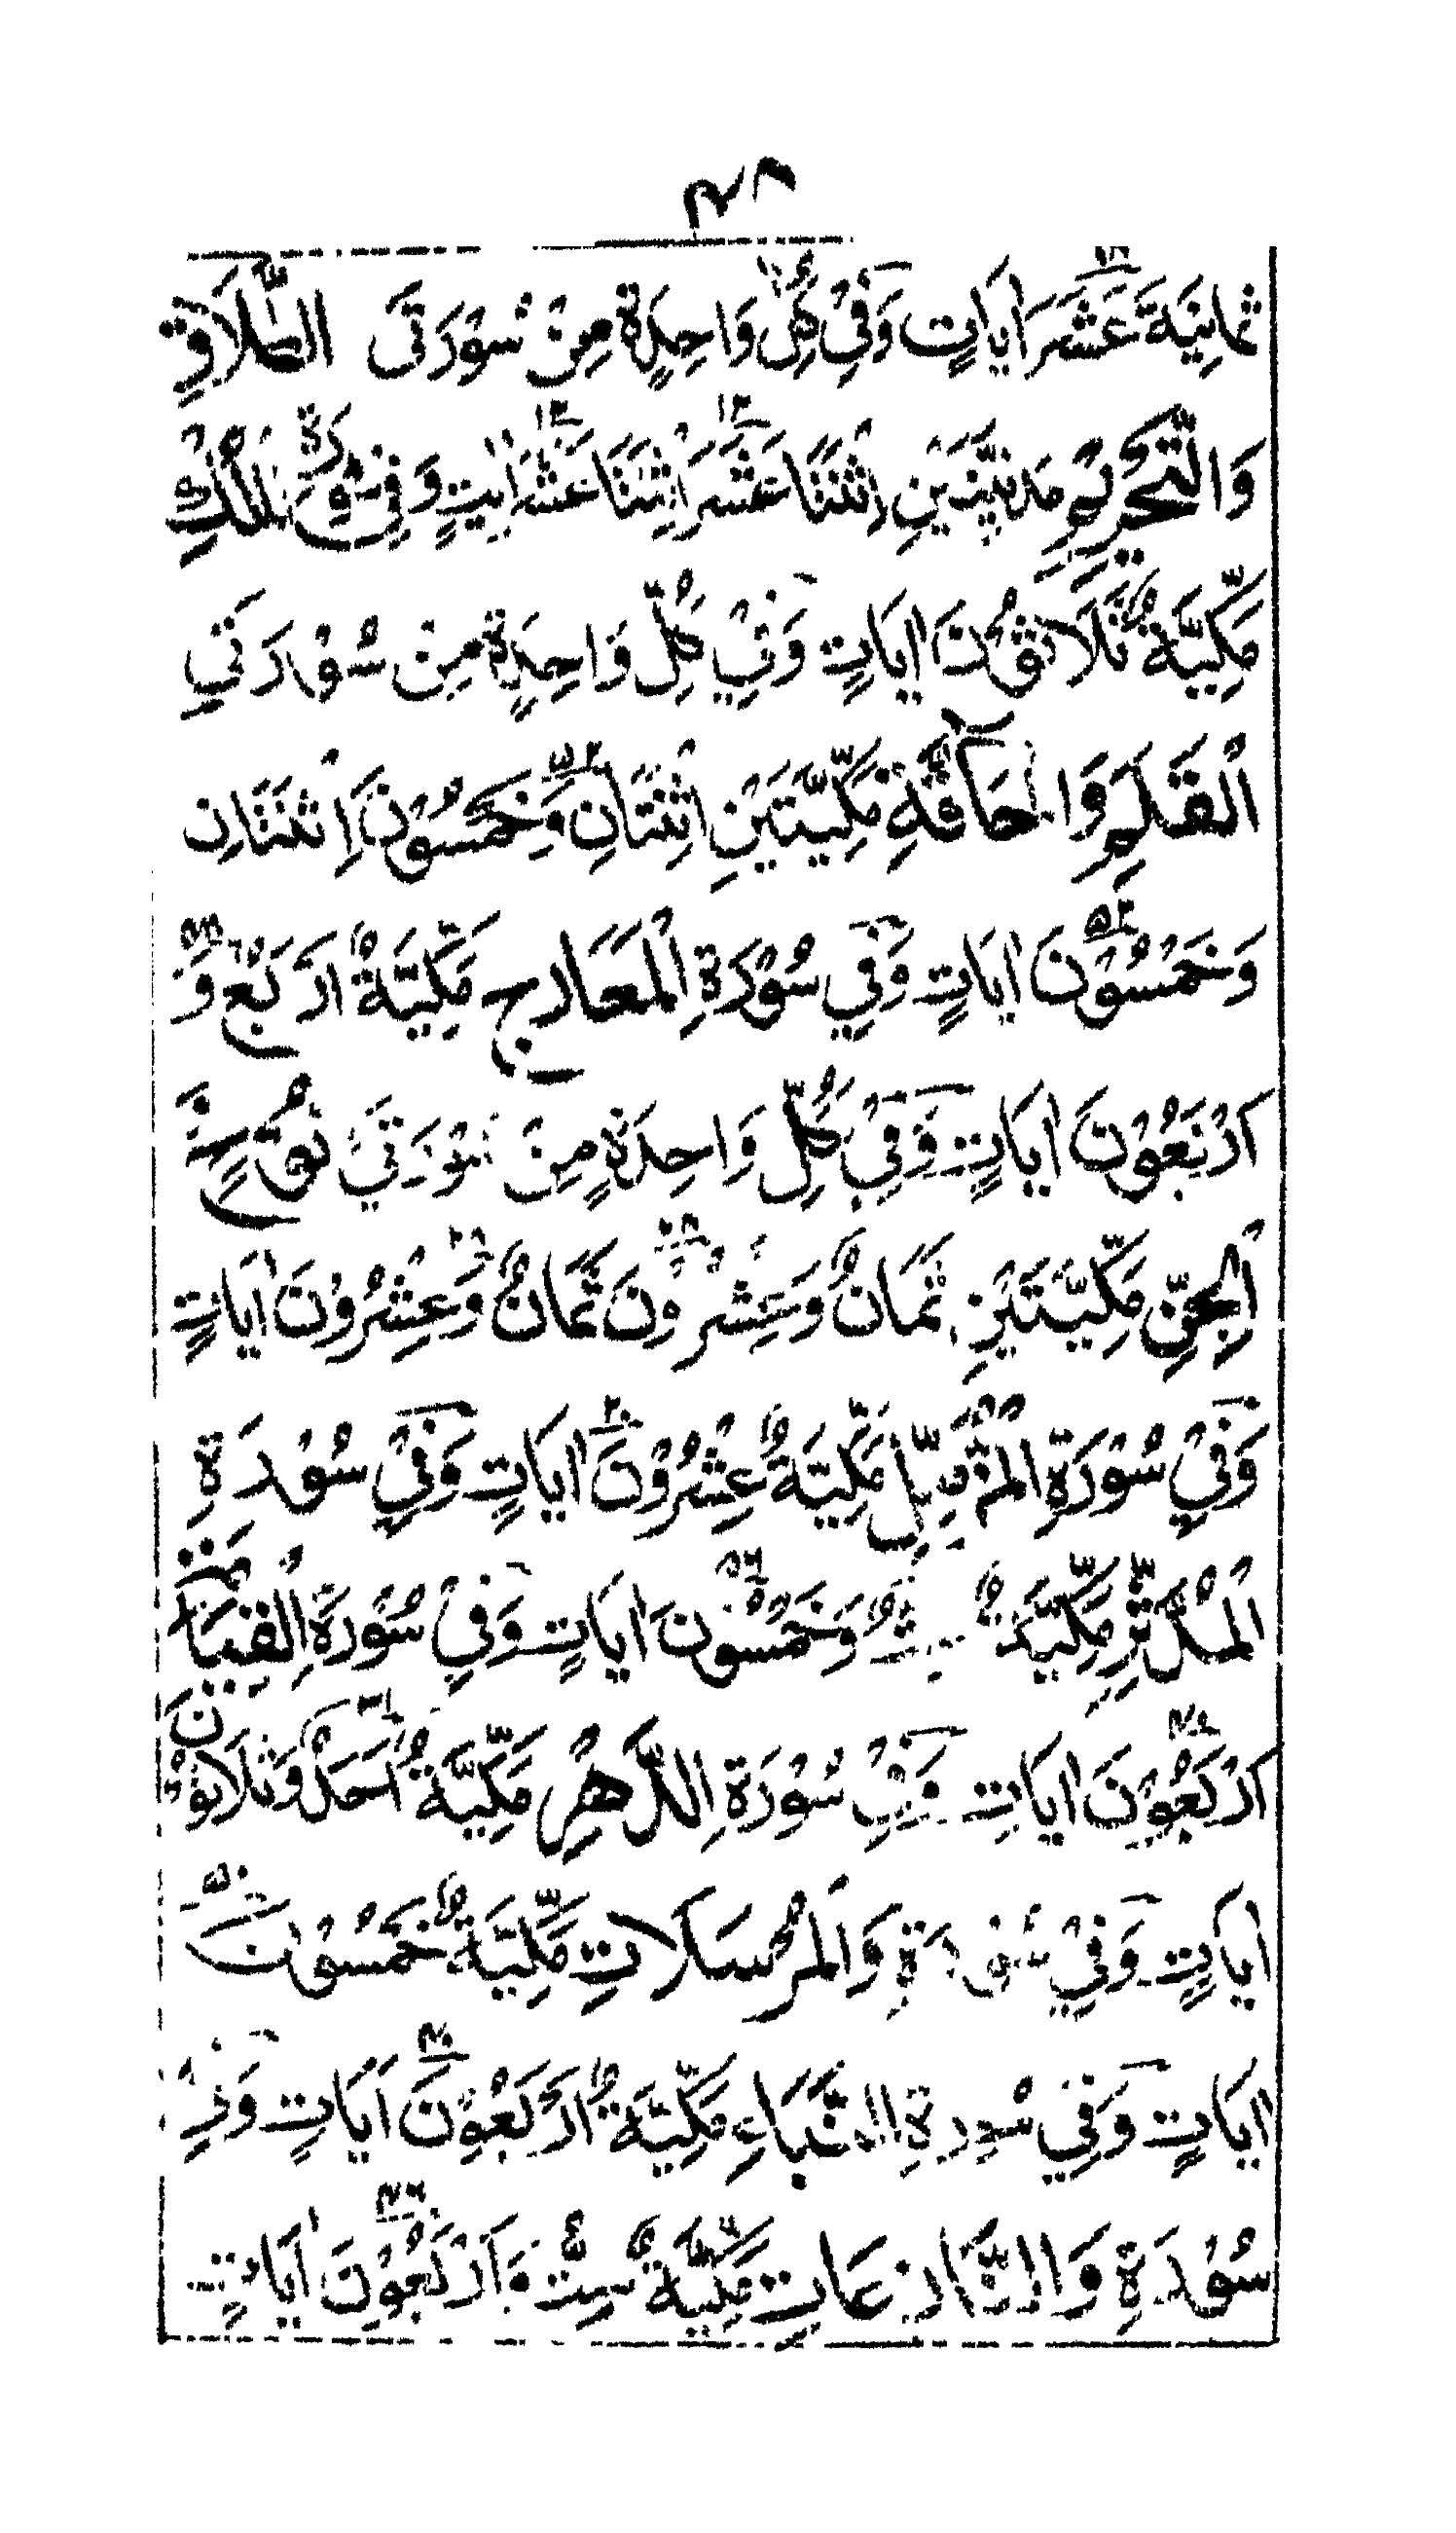 ٤٨
ثَمانِيَةَ عَشَرَ اٰيَاتٍ وَفِيْ كُلِّ وَاحِدَةٍ مِنْ سُوْرَتَى الطَّلَاقِ
وَالتَّحْرِيْمِ مَدَنِيَّتَيْنِ اِثْنَتَا عَشَرَ اِثْنَتَا عَشَرَ اٰيٰتٍ وَفِىْ سُوْرَةِ الْمُلْكِ
مَكِّيَّةٌ ثَلَاثُوْنَ اٰيَاتٍ وَفِيْ كُلِّ وَاحِدَةٍ مِنْ سُوْرَتَيِ
الْقَلَمِ وَالْحَاقَّةِ مَكِّيَّتَيْنِ اِثْنَتَانِ وَخَمْسُوْنَ اِثْنَتَانِ
وَخَمْسُوْنَ اٰيَاتٍ وَفِي سُوْرَةِ الْمَعَارِجِ مَكِّيَّةٌ اَرْبَعٌ وَّ
اَرْبَعُوْنَ اٰيَاتٍ وَفِيْ كُلِّ وَاحِدَةٍ مِنْ سُوْرَتَيْ نُوْحٍ
الْجِنِّ مَكِّيَّتَيْنِ ثَمَانٌ وَعِشْرُوْنَ ثَمَانٌ وَّعِشْرُوْنَ اٰيَاتٍ
٢٨
وَفِيْ سُوْرَةِ الْمُزَّمِّلِ مَكِّيَّةٌ عِشْرُوْنَ اٰيَاتٍ وَفِيْ سُوْرَةِ
٢٠
الْمُدَّثِّرِ مَكِّيَّةٌ وَخَمْسُوْنَ اٰيَاتٍ وَفِيْ سُوْرَةِ الْقِيَامَةِ
٥٦
اَرْبَعُوْنَ اٰيَاتٍ وَفِيْ سُوْرَةِ الدَّهْرِ مَكِّيَّةٌ اَحَدٌ وَّثَلَاثُوْنَ
اٰيَاتٍ وَفِيْ سُوْرَةِ وَالْمُرْسَلَاتِ مَكِّيَّةٌ خَمْسُوْنَ
٥٠
اٰيَاتٍ وَفِي سُوْرَةِ النَّبَاءِ مَكِّيَّةٌ اَرْبَعُوْنَ اٰيَاتٍ وَفِيْ
٤٠
سُوْرَةِ وَالنَّازِعَاتِ مَكِّيَّةٌ سِتٌّ وَاَرْبَعُوْنَ اٰيَاتٍ
٤٦